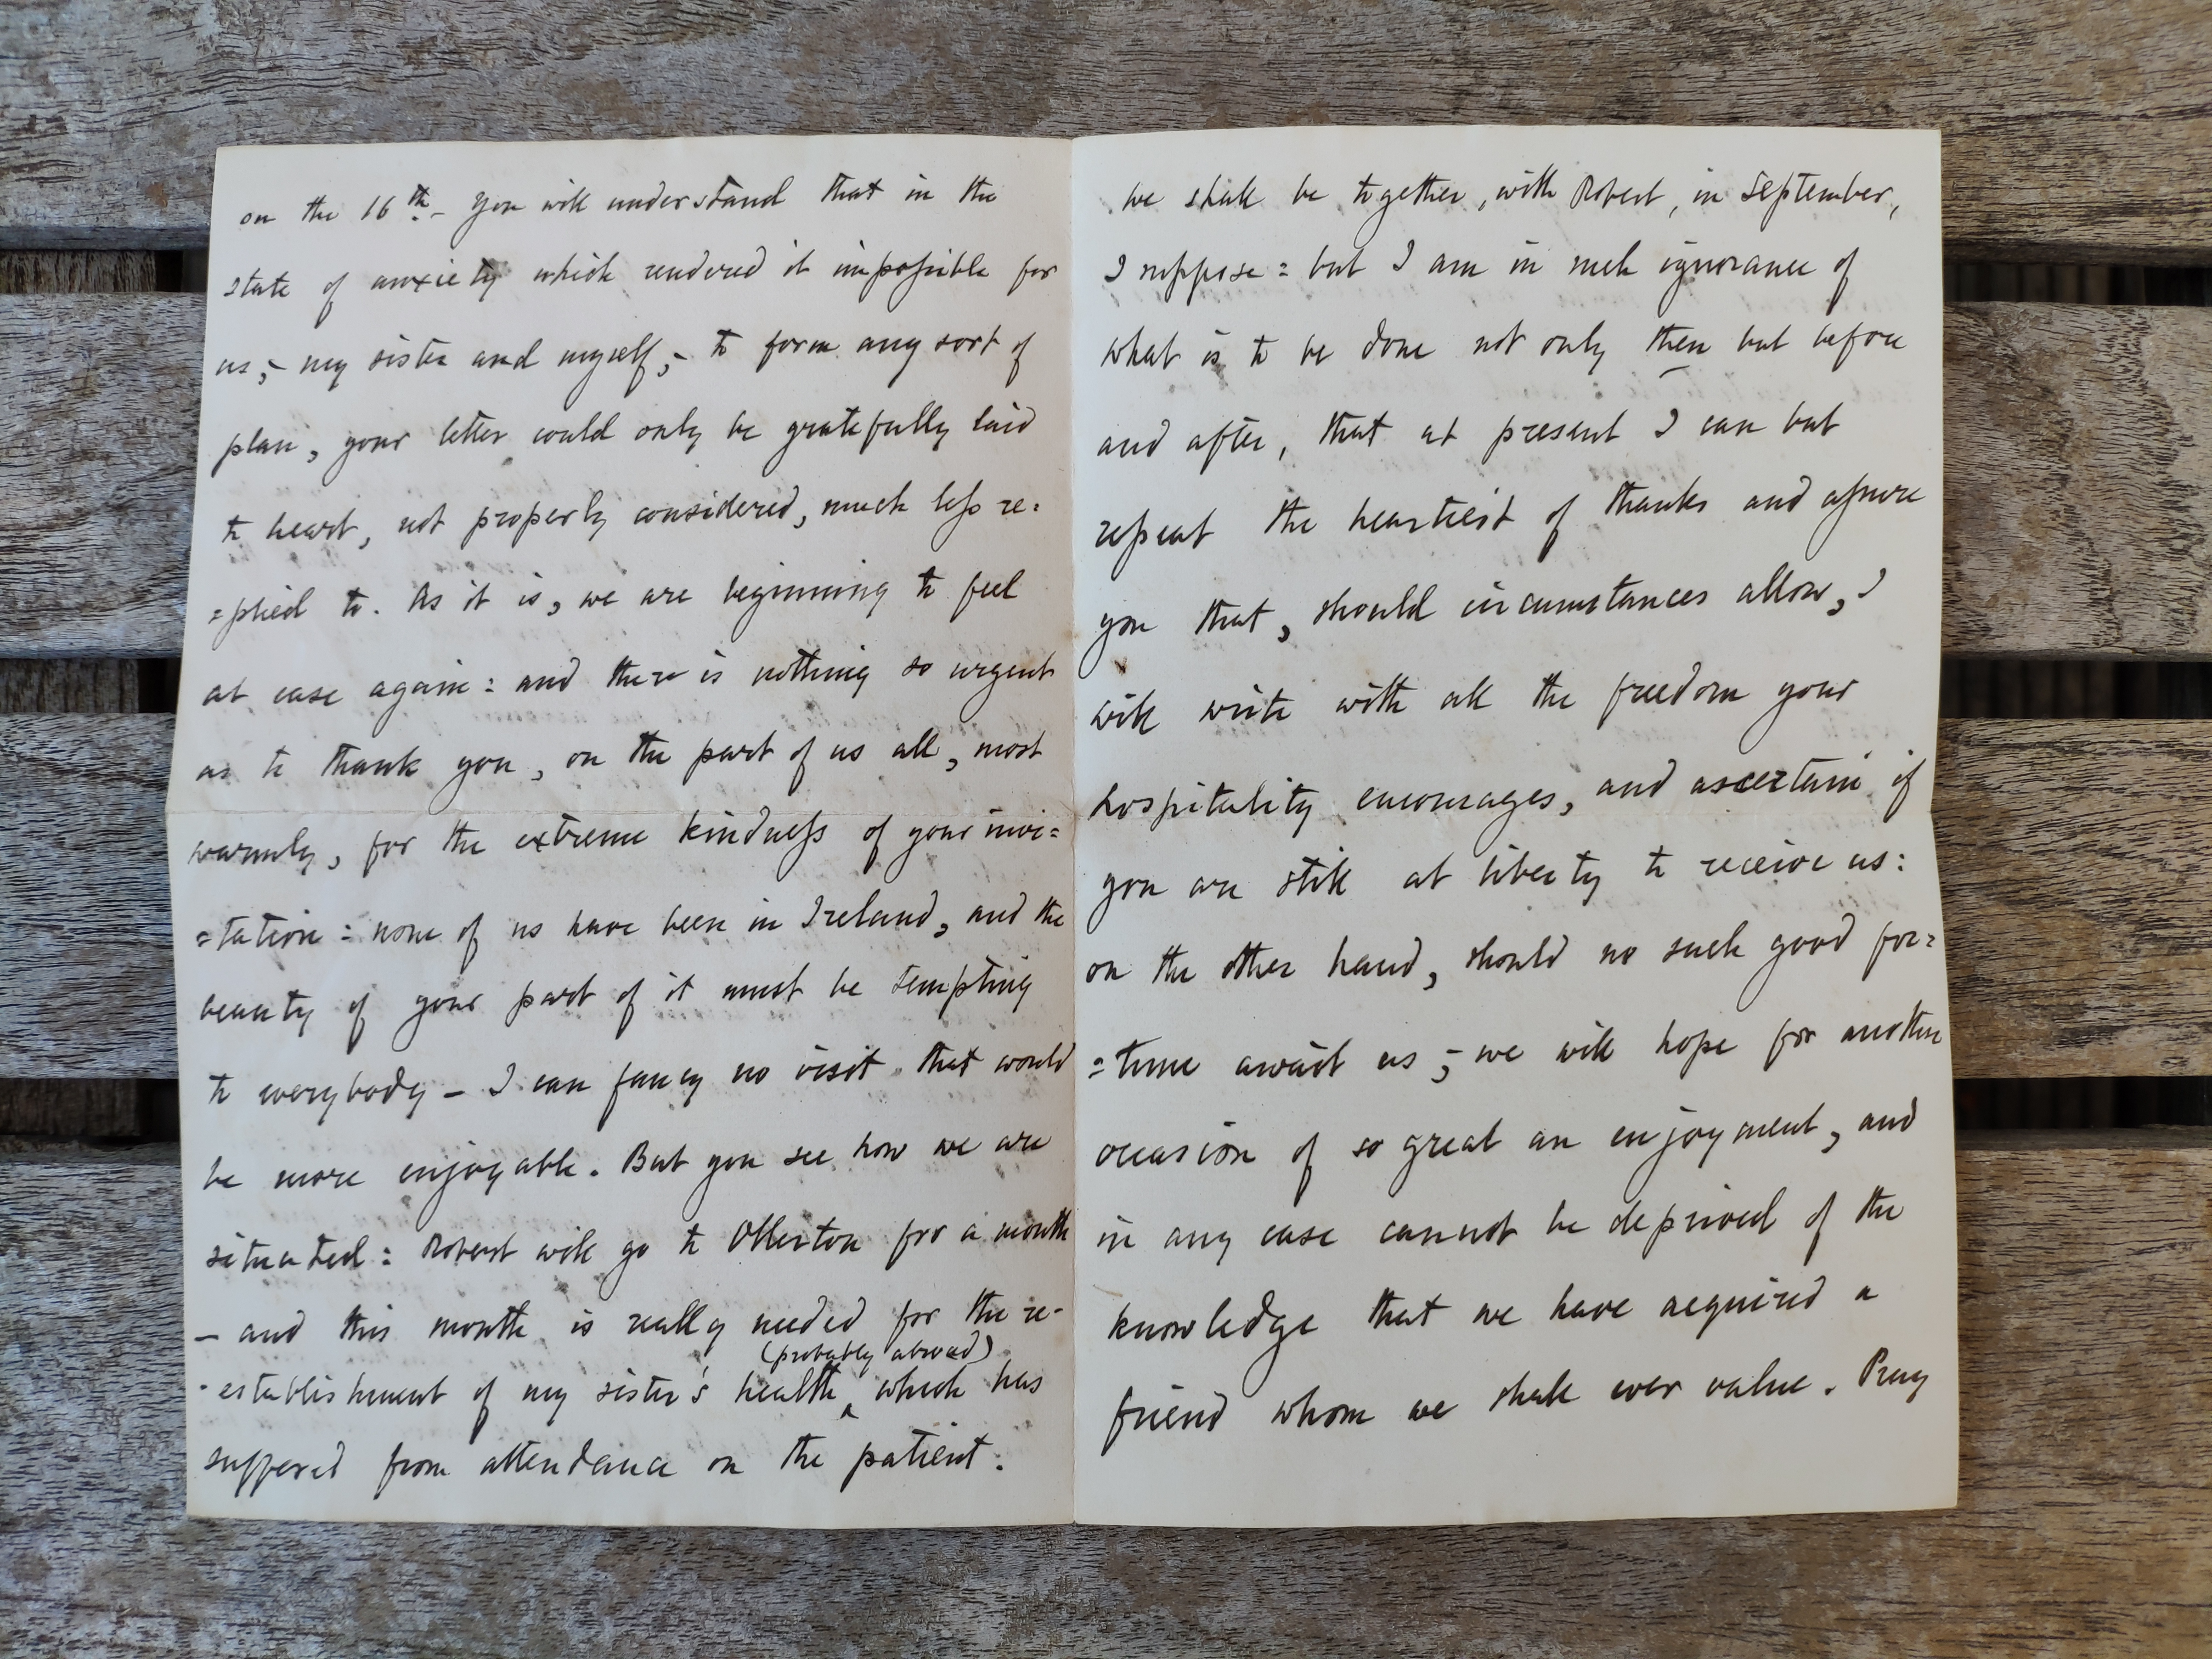 on the 16th. You will understand that in the
state of anxiety which rendered it impossible for
us, - my sister and myself, - to form any sort of
plan, your letter could only be gratefully laid
to heart, not properly considered, much less re=
=plied to. As it is, we are beginning to feel
at ease again: and there is nothing so urgent
as to thank you, on the part of us all, most
warmly, for the extreme kindness of your invi=
=tation: none of us have been in Ireland, and the
beauty of your part of it must be tempting
to everybody - I can fancy no visit that would
be more enjoyable. But you see how we are
situated: Robert will go to Ollerton for a month
- and this month is really needed for the re-
(probably abroad)
-establishment of my sister's health, which has
suffered from attendance on the patient.
We shall be together, with Robert, in September,
I suppose: but I am in such ignorance of
what is to be done not only then but before
and after, that at present I can but
repeat the heartiest of thanks and assure
you that, should circumstances allow, I
will write with all the freedom your
hospitality encourages, and ascertain if
you are still at liberty to receive us:
on the other hand, should no such good for=
=tune await us; we will hope for another
occasion of so great an enjoyment, and
in any case cannot be deprived of the
knowledge that we have acquired a
friend whom we shall ever value. Pray